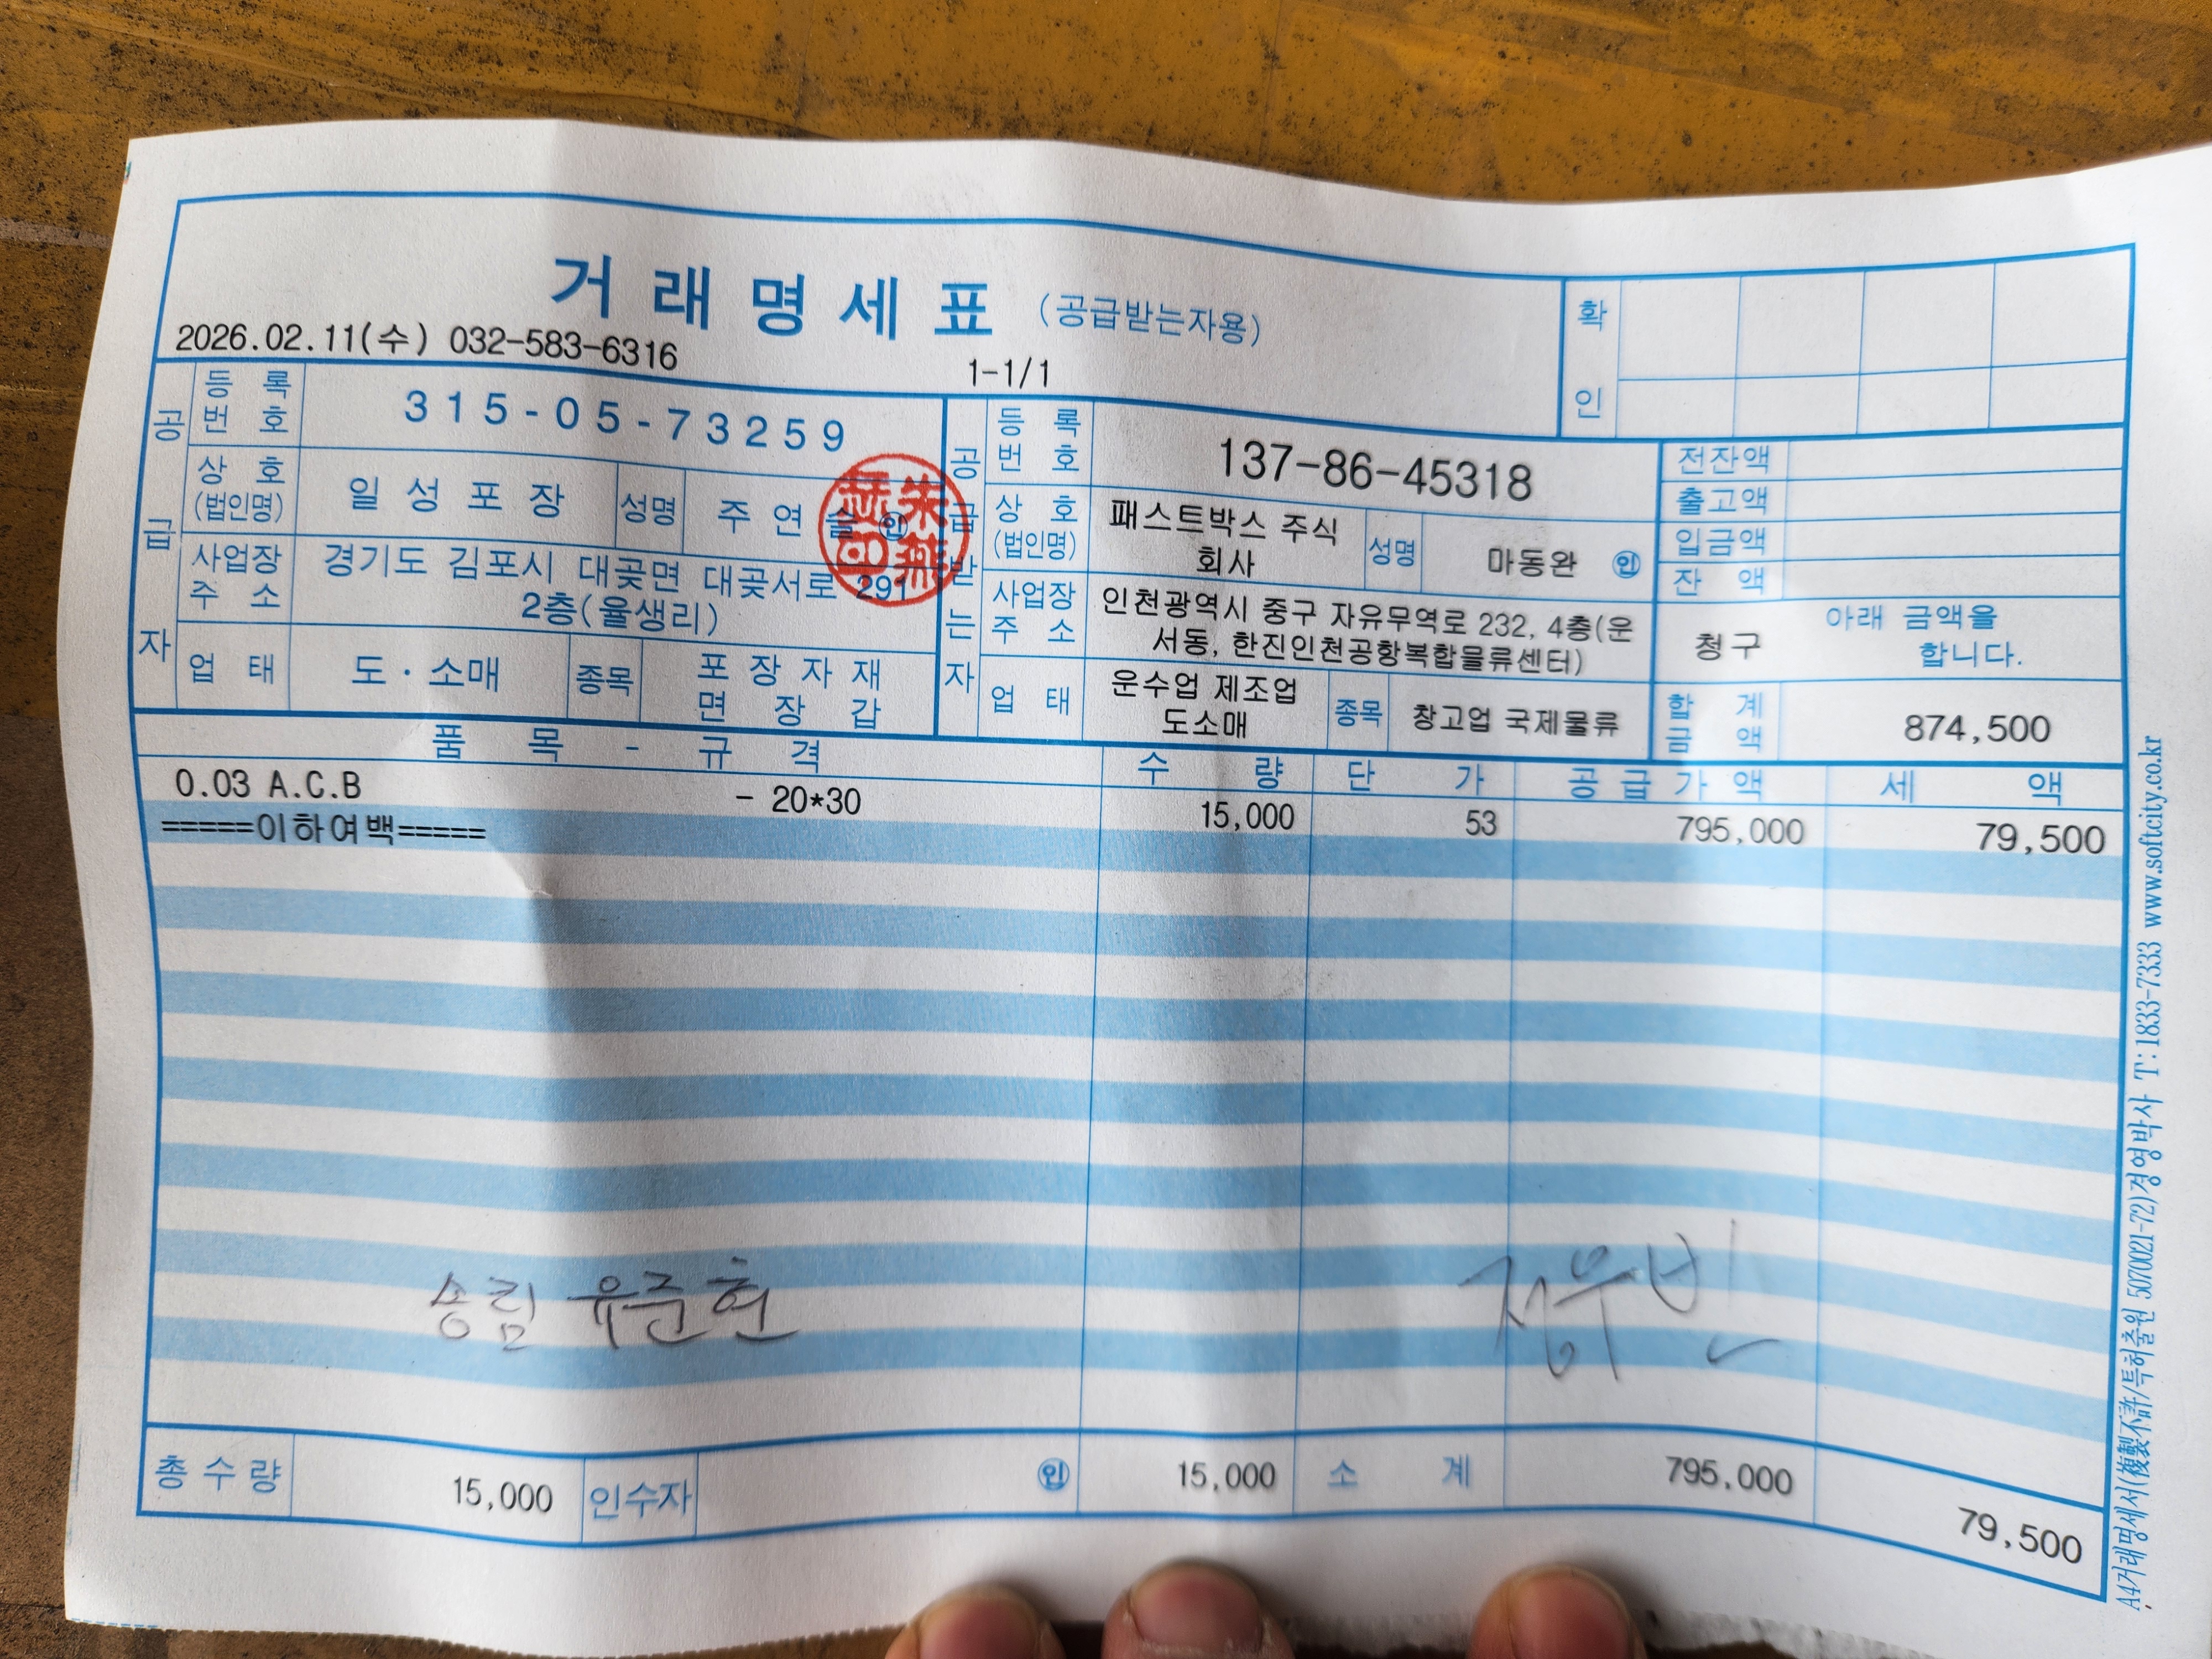 거래명세표 (공급받는자용)
2026.02.11(수) 032-583-6316
1-1/1
확인
공급자
등록번호 315-05-73259
상호(법인명) 일성포장 성명 주연슬 인
사업장주소 경기도 김포시 대곶면 대곶서로 291
2층(율생리)
업태 도·소매 종목 포장자재
면장갑
공급받는자
등록번호 137-86-45318
상호(법인명) 패스트박스 주식
회사 성명 마동완 인
사업장주소 인천광역시 중구 자유무역로 232, 4층(운
서동, 한진인천공항복합물류센터)
업태 운수업 제조업
도소매 종목 창고업 국제물류
전잔액
출고액
입금액
잔액
아래 금액을
청구 합니다.
합계금액 874,500
품목-규격 수량 단가 공급가액 세액
0.03 A.C.B - 20*30 15,000 53 795,000 79,500
=====이하여백=====
송림 유준현
정우빈
총수량 15,000 인수자 인 15,000 소계 795,000 79,500
A4거래명세서(複製不許/특허출원 5070021-72)경영박사 T:1833-7333 www.softcity.co.kr